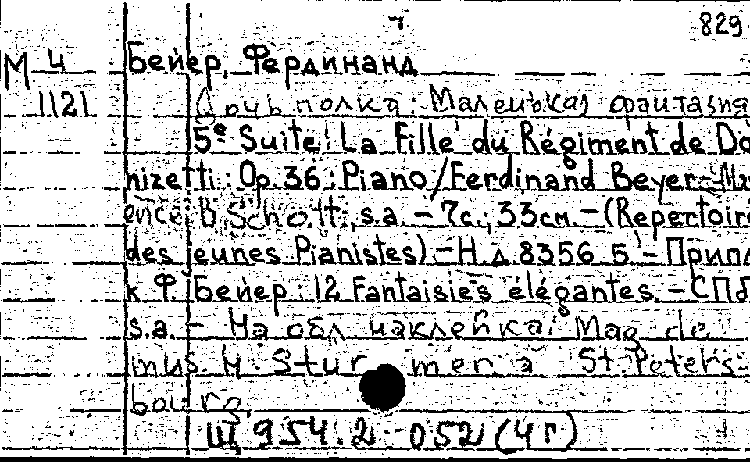 829
М 4 Бейер, Фердинанд
1121 Дочь полка: Маленькая фантазия
5e Suite: La Fille du Régiment de Do
nizetti: Op. 36: Piano/Ferdinand Beyer.-Ma
ence: B Schott, s.a. - 7с.; 33см. - (Repertoir
des jeunes Pianistes) - Н.д. 8356 5 - Припл
к Ф. Бейер: 12 Fantaisies élégantes. - СПб
s.a. - На обл наклейка: Mag de
mus. H. Stur mer a St. Peters-
bourg.
Щ 954.2 - 052 (4 г)